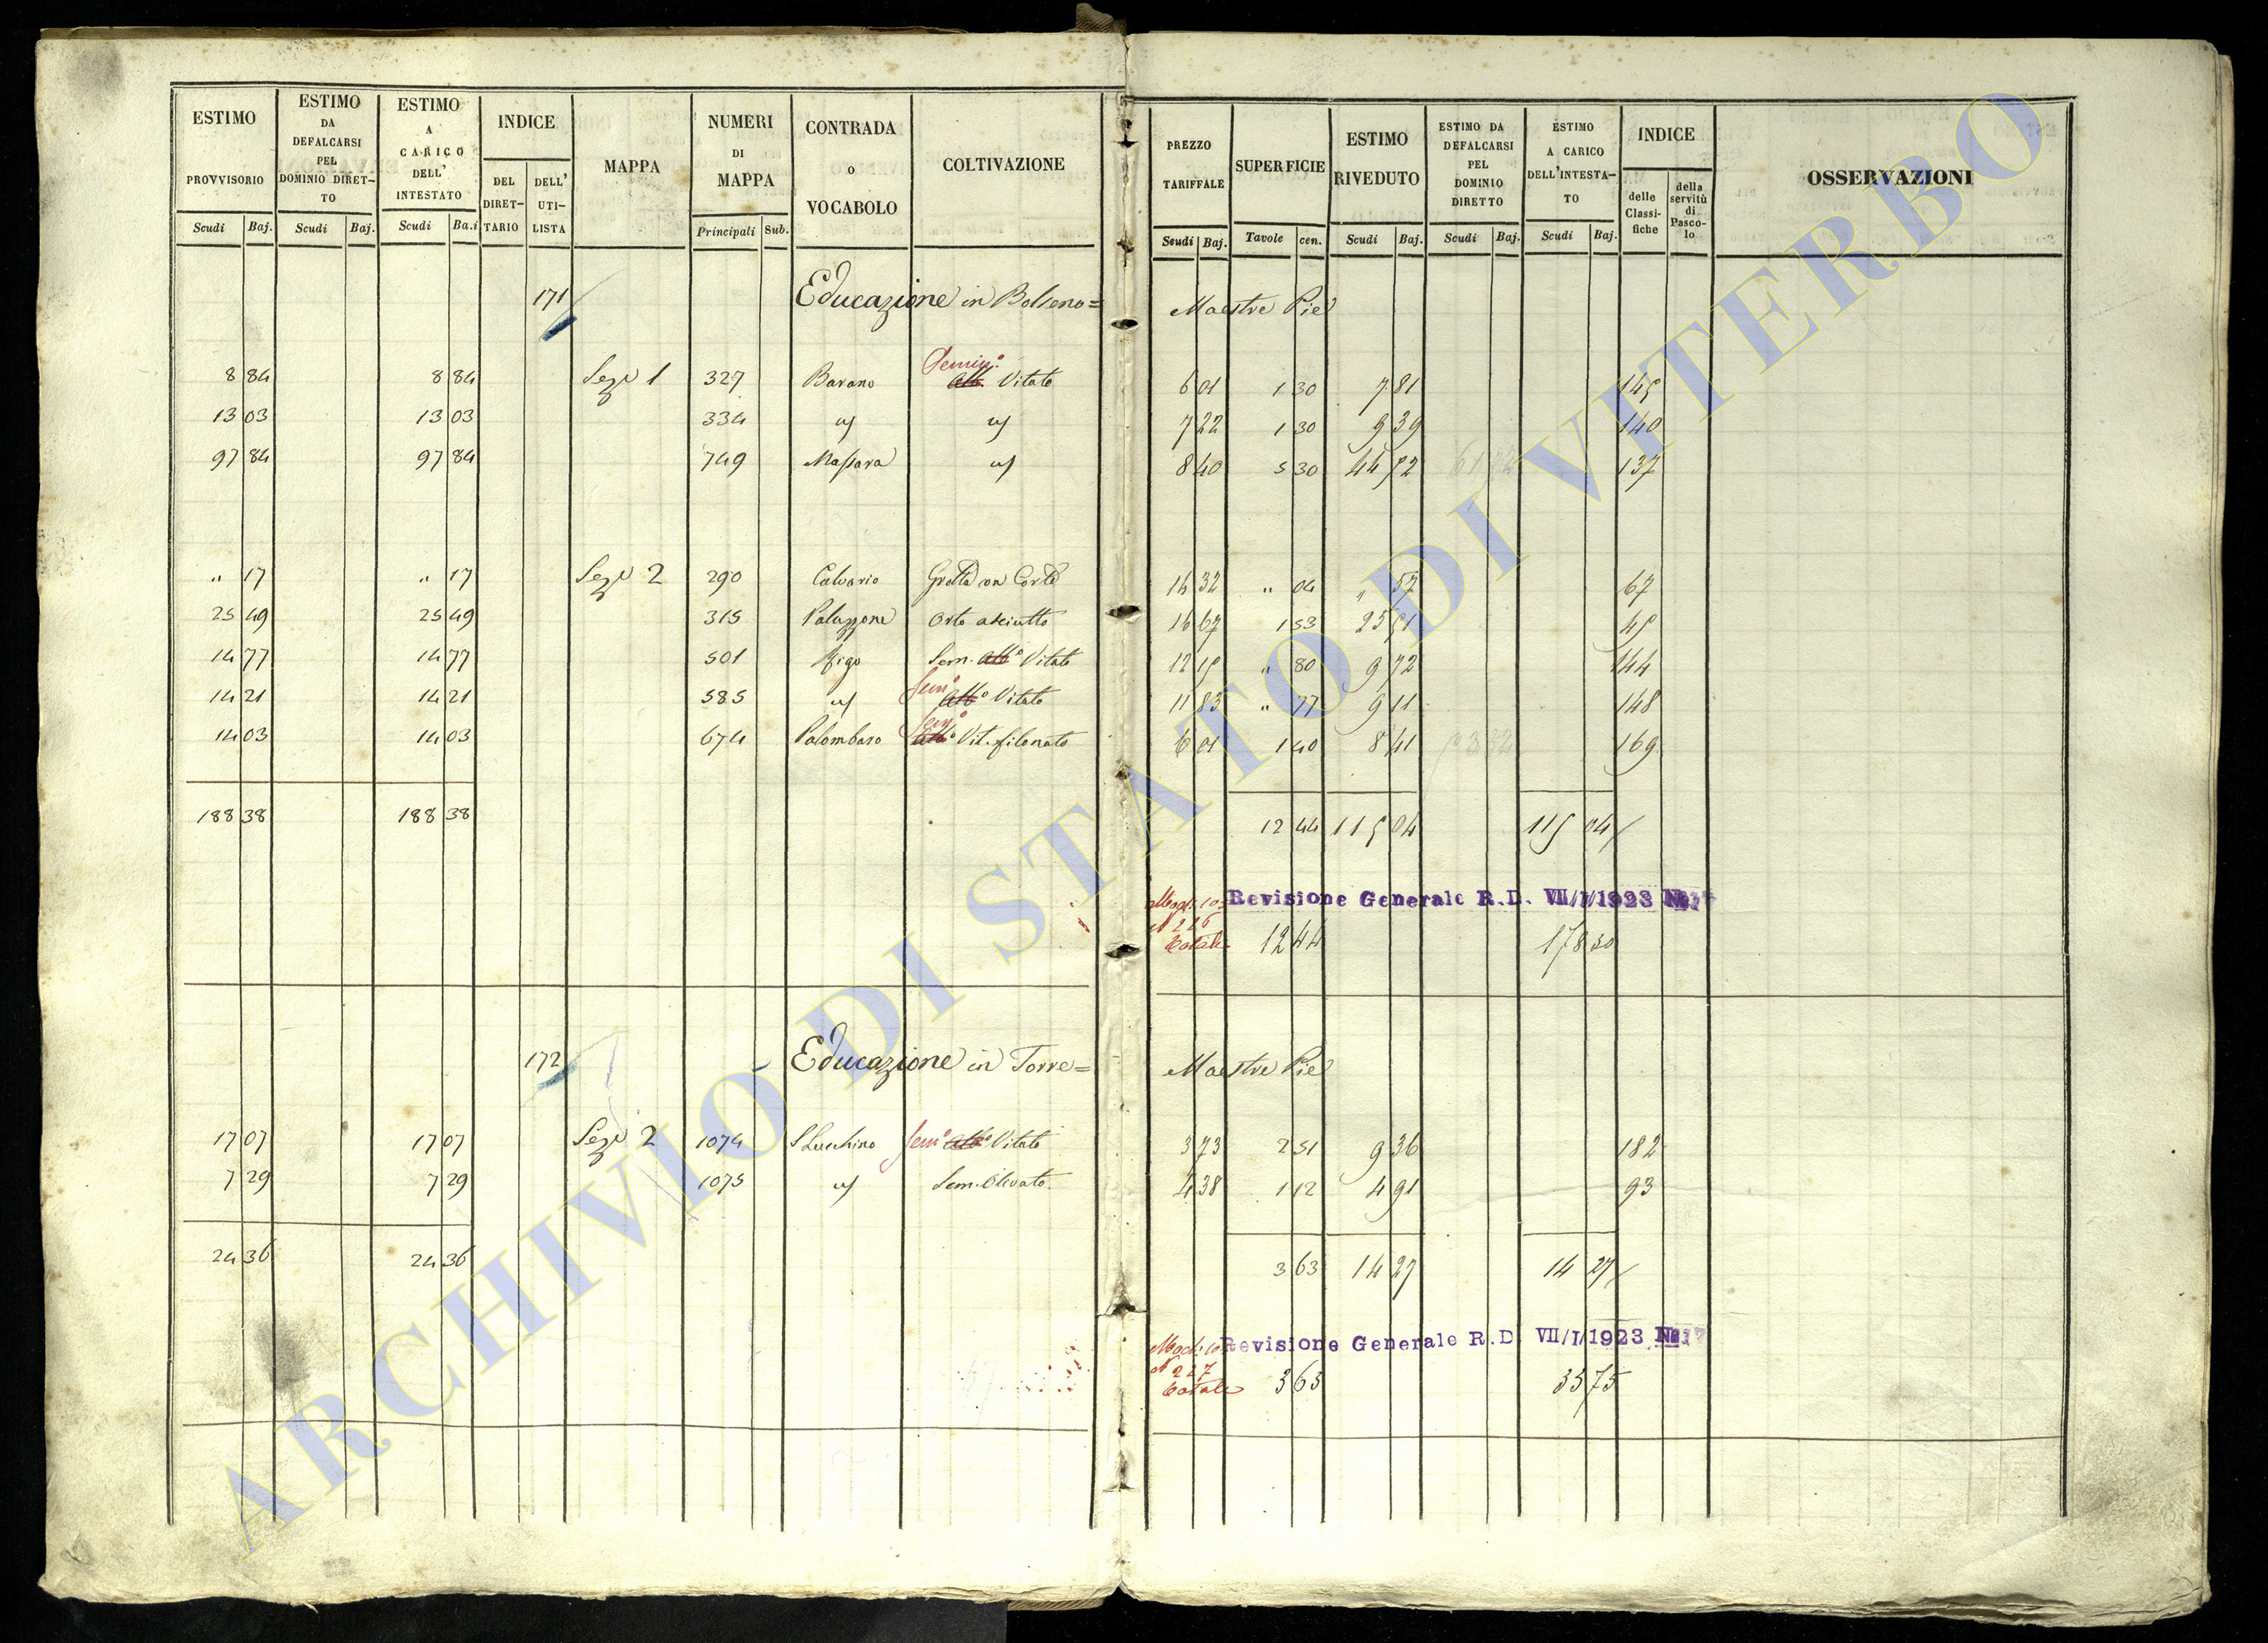 ESTIMO PROVVISORIO Scudi Baj.
ESTIMO DA DEFALCARSI PEL DOMINIO DIRET-TO Scudi Baj.
ESTIMO A CARICO DELL' INTESTATO Scudi Ba.i
INDICE DEL DIRET-TARIO DELL' UTI-LISTA
MAPPA
NUMERI DI MAPPA Principali Sub.
CONTRADA o VOCABOLO
COLTIVAZIONE
PREZZO TARIFFALE Scudi Baj.
SUPERFICIE Tavole cen.
ESTIMO RIVEDUTO Scudi Baj.
ESTIMO DA DEFALCARSI PEL DOMINIO DIRETTO Scudi Baj.
ESTIMO A CARICO DELL'INTESTA-TO Scudi Baj.
INDICE delle Classi-fiche della servitù di Pasco-lo
OSSERVAZIONI
171 Educazione in Bolseno= Maestre Pie
8 84 8 84 Sez. 1 327 Barano Semin.º Alb. Vitato 6 01 1 30 7 81 145
13 03 13 03 334 " " 7 22 1 30 9 39 140
97 84 97 84 749 Massara " 8 40 5 30 44 52 137
" 17 " 17 Sez. 2 290 Calvario Grotta con Corte 14 32 " 04 " 57 67
25 49 25 49 315 Palazzone Orto asciutto 16 67 1 53 25 51 45
14 77 14 77 501 Rigo Sem. Alb.º Vitato 12 15 " 80 9 72 144
14 21 14 21 585 " Sem.º Alb.º Vitato 11 83 " 77 9 11 148
14 03 14 03 674 Palombaro Sem.º Alb.º Vit. filonato 6 01 1 40 8 41 169
188 38 188 38 12 44 115 04 115 04
Revisione Generale R.D. VII/I/1923 N.17
N 226
Totale 12 44 178 30
172 Educazione in Torre= Maestre Pie
17 07 17 07 Sez. 2 1074 S Lucchino Sem.º Alb.º Vitato 3 73 2 51 9 36 182
7 29 7 29 1075 " Sem. Olivato 4 38 1 12 4 91 93
24 36 24 36 3 63 14 27 14 27
Revisione Generale R.D VII/I/1923 N.17
N 227
Totale 3 63 35 75
ARCHIVIO DI STATO DI VITERBO